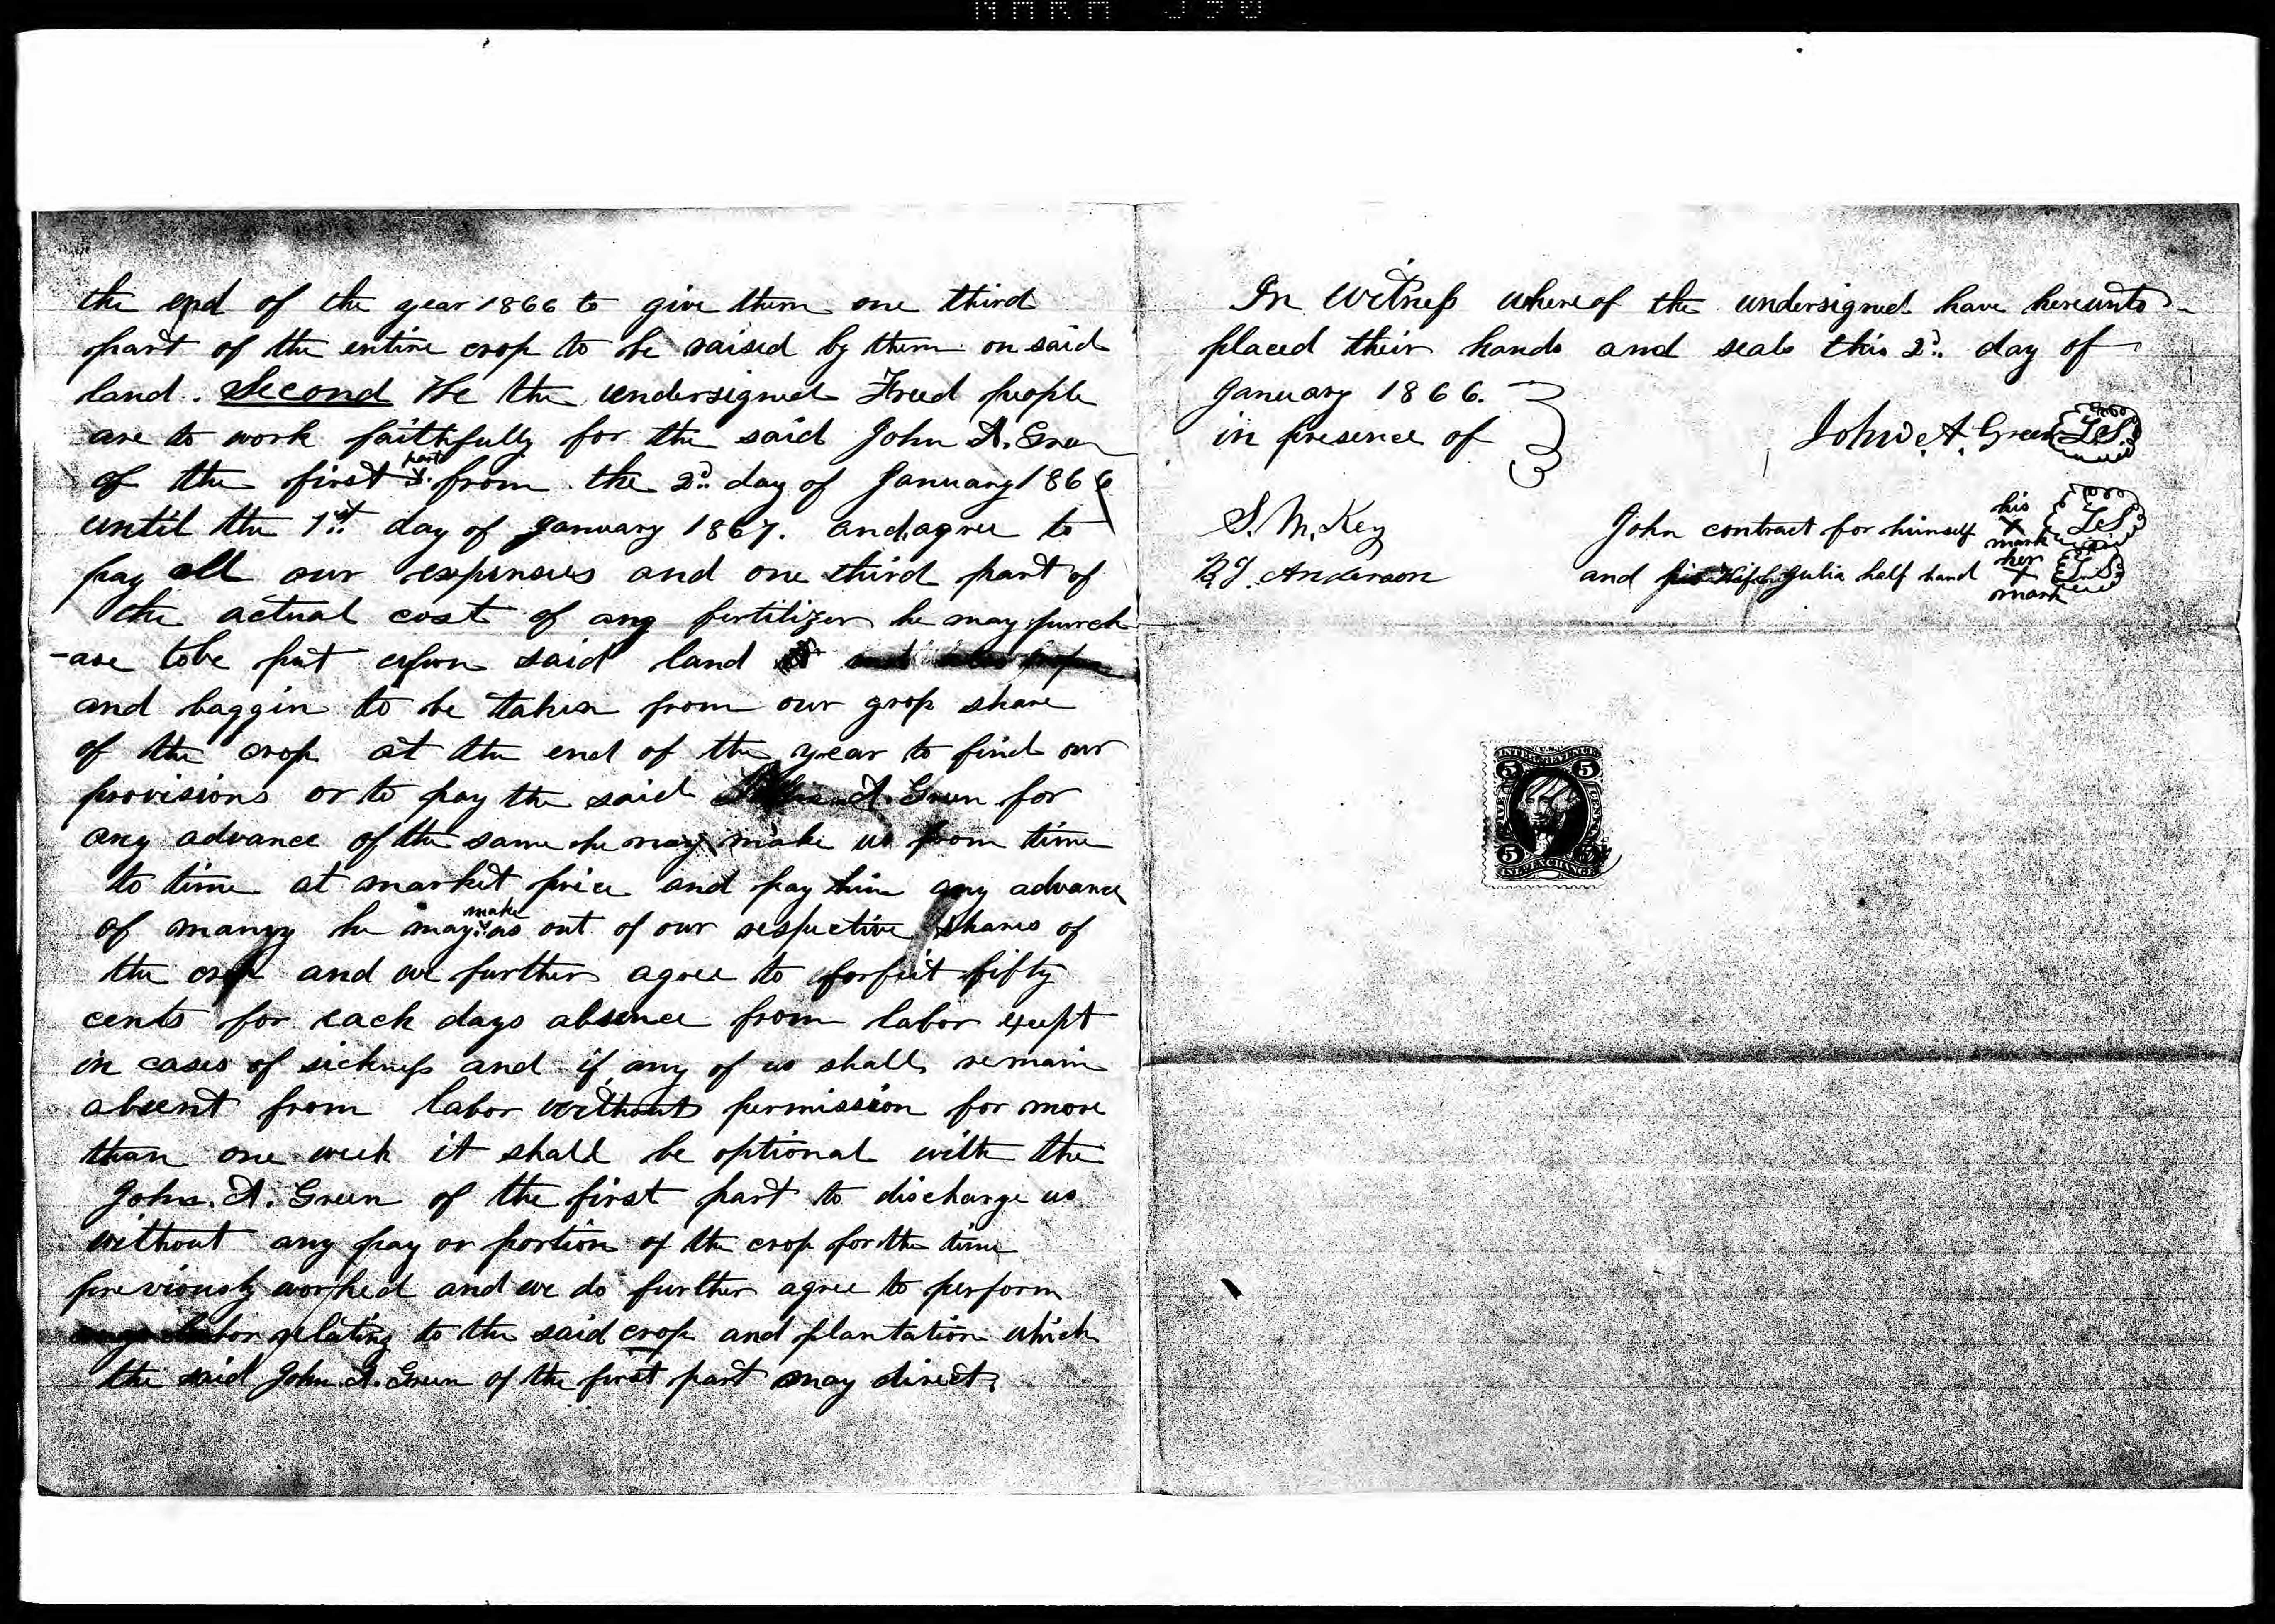 the end of the year 1866 to give them one third
part of the entire crop to be raised by them on said
land. Second We the undersigned Freed people
are to work faithfully for the said John A. Green
of the first part from the 2d day of January 1866
until the 1st day of January 1867. and agree to
pay all our expenses and one third part of
the actual cost of any fertilizer he may purch
-ase tobe put upon said land
and baggin to be taken from our grop share
of the crop at the end of the year to find our
provisions or to pay the said A. Green for
any advance of the same he may make us from time
to time at market price and pay him any advance
of manny he may make us out of our respective shares of
the crop and we further agree to forfeit fifty
cents for each days absence from labor except
in cases of sickness and if any of us shall remain
absent from labor without permission for more
than one week it shall be optional with the
John. A. Green of the first part to discharge us
without any pay or portion of the crop for the time
previously worked and we do further agree to perform
labor relating to the said crop and plantation which
the said John A. Green of the first part may direct.
In Witness whereof the undersigned have hereunto
placed their hands and seals this 2d. day of
January 1866.
in presence of
John A. Green L.S.
S. M. Key
John contract for himself his X mark L.S.
Anderson
and his Wife Julia half hand her X mark L.S.
INTER. REVENUE
U.S.
5 5
FIVE CENTS
5 5
INLD. EXCHANGE